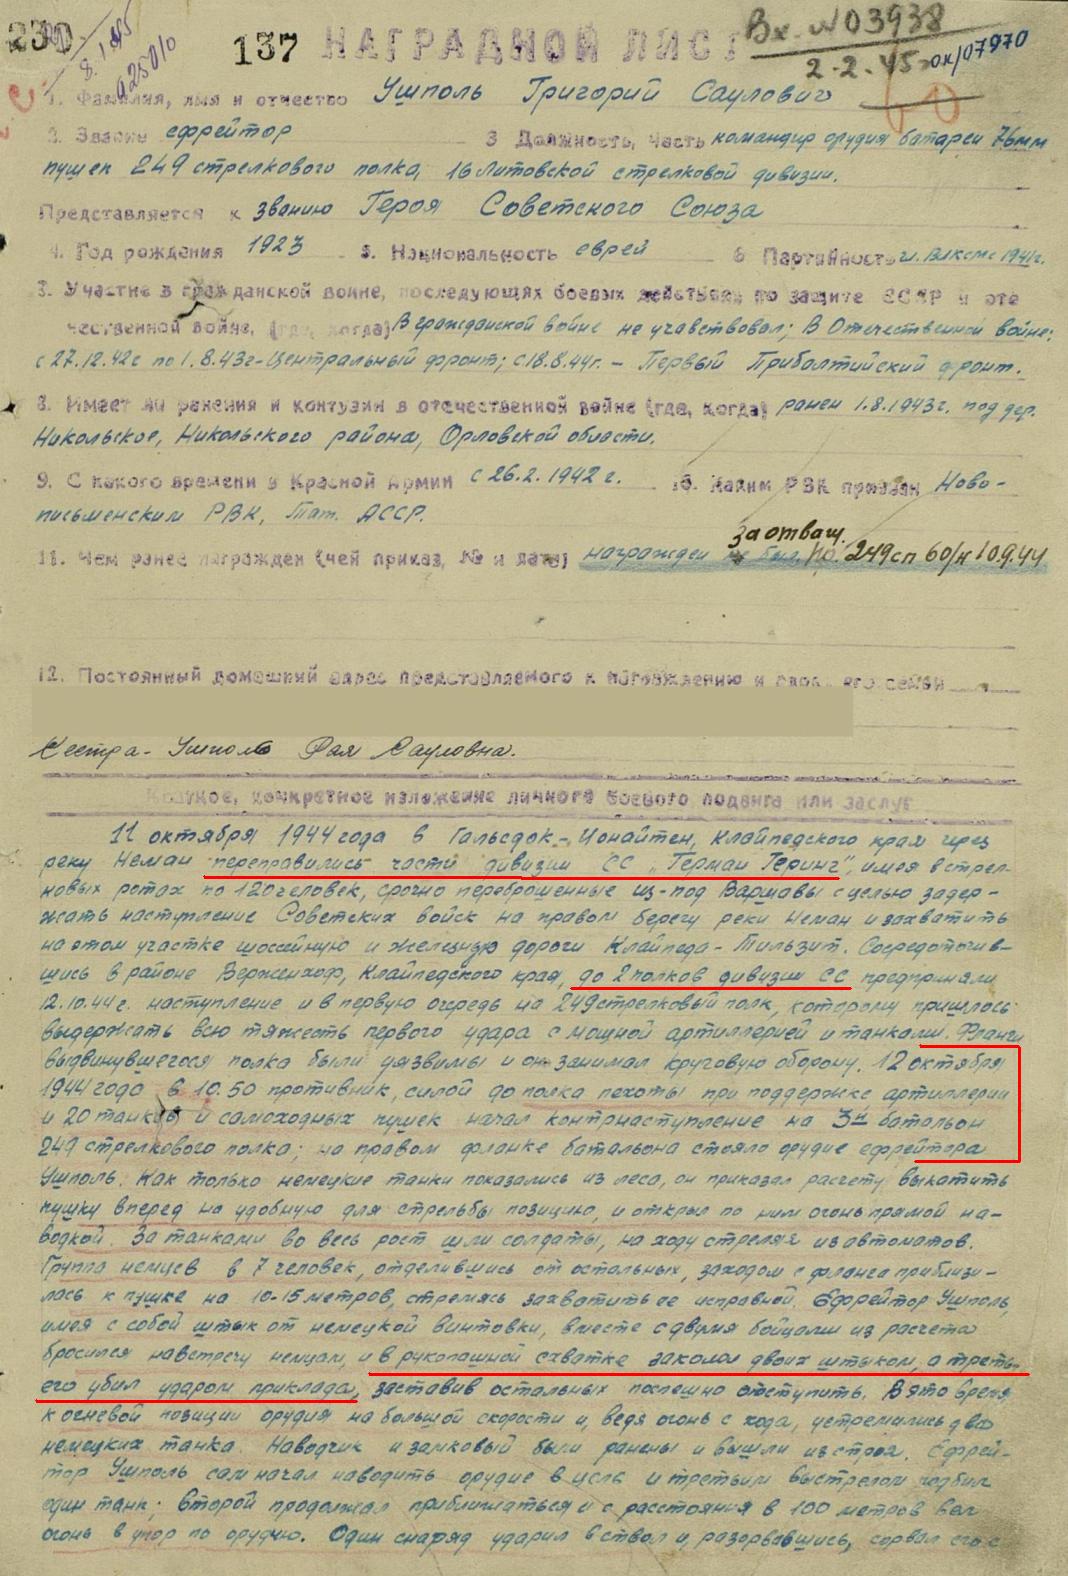 230
8.1.45
137 НАГРАДНОЙ ЛИСТ
Вх. №03938
2.2.45
07970
1. Фамилия, имя и отчество Ушполь Григорий Саулович
2. Звание ефрейтор 3 Должность, часть командир орудия батареи 76мм
пушек 249 стрелкового полка, 16 Литовской стрелковой дивизии.
Представляется к званию Героя Советского Союза
4. Год рождения 1923 5. Национальность еврей 6 Партийность чл. ВЛКСМ с 1941г.
Участие в гражданской войне, последующих боевых действиях по защите СССР и оте
чественной войне, (где, когда) В гражданской войне не учавствовал; В Отечественной войне:
с 27.12.42г по 1.8.43г-Центральный фронт; с 18.8.44г. – Первый Прибалтийский фронт.
8. Имеет ли ранения и контузии в отечественной войне (где, когда) ранен 1.8.1943г. под дер.
Никольское, Никольского района, Орловской области.
9. С какого времени в Красной Армии с 26.2.1942 г. 10. Каким РВК призван Ново-
письменским РВК, Тат. АССР.
за отваг.
11. Чем ранее награжден (чей приказ, № и дата) награжден не был. Пр. 249сп 60/н 10.9.44
12. Постоянный домашний адрес представляемого к награждению и его семьи
Сестра- Ушполь Рая Сауловна.
Краткое, конкретное изложение личного боевого подвига или заслуг
11 октября 1944 года в Гальсдок-Ионайтен, Клайпедского края через
реку Неман переправились части дивизии СС „Герман Геринг", имея в стрел-
новых ротах по 120 человек, срочно переброшенные из-под Варшавы с целью задер-
жать наступление Советских войск на правом берегу реки Неман и захватить
на этом участке шоссейную и железную дороги Клайпеда-Тильзит. Сосредоточив-
шись в районе Верженхоф, Клайпедского края, до 2 полков дивизии СС предприняли
12.10.44г. наступление и в первую очередь на 249 стрелковый полк, которому пришлось
выдержать всю тяжесть первого удара с мощной артиллерией и танками. Фланги
выдвинувшегося полка были уязвимы и он занимал круговую оборону. 12 октября
1944 года в 10.50 противник, силой до полка пехоты при поддержке артиллерии
и 20 танков и самоходных пушек начал контрнаступление на 3й батальон
249 стрелкового полка; на правом фланке батальона стояло орудие ефрейтора
Ушполь. Как только немецкие танки показались из леса, он приказал расчету выкатить
пушку вперед на удобную для стрельбы позицию, и открыл по ним огонь прямой на-
водкой. За танками во весь рост шли солдаты, на ходу стреляя из автоматов.
Группа немцев в 7 человек, отделившись от остальных, заходом с фланга приблизи-
лась к пушке на 10-15 метров, стремясь захватить ее исправной. Ефрейтор Ушполь,
имея с собой штык от немецкой винтовки, вместе с двумя бойцами из расчета
бросился навстречу немцам, и в рукопашной схватке заколол двоих штыком, а треть-
его убил ударом приклада, заставив остальных поспешно отступить. В это время
к огневой позиции орудия на большой скорости и, ведя огонь с хода, устремились два
немецких танка. Наводчик и замковый были ранены и вышли из строя. Ефрей-
тор Ушполь сам начал наводить орудие в цель и третьим выстрелом подбил
один танк; второй продолжал приближаться и с расстояния в 100 метров вел
огонь в упор по орудию. Один снаряд ударил в ствол и, разорвавшись, сорвал его с